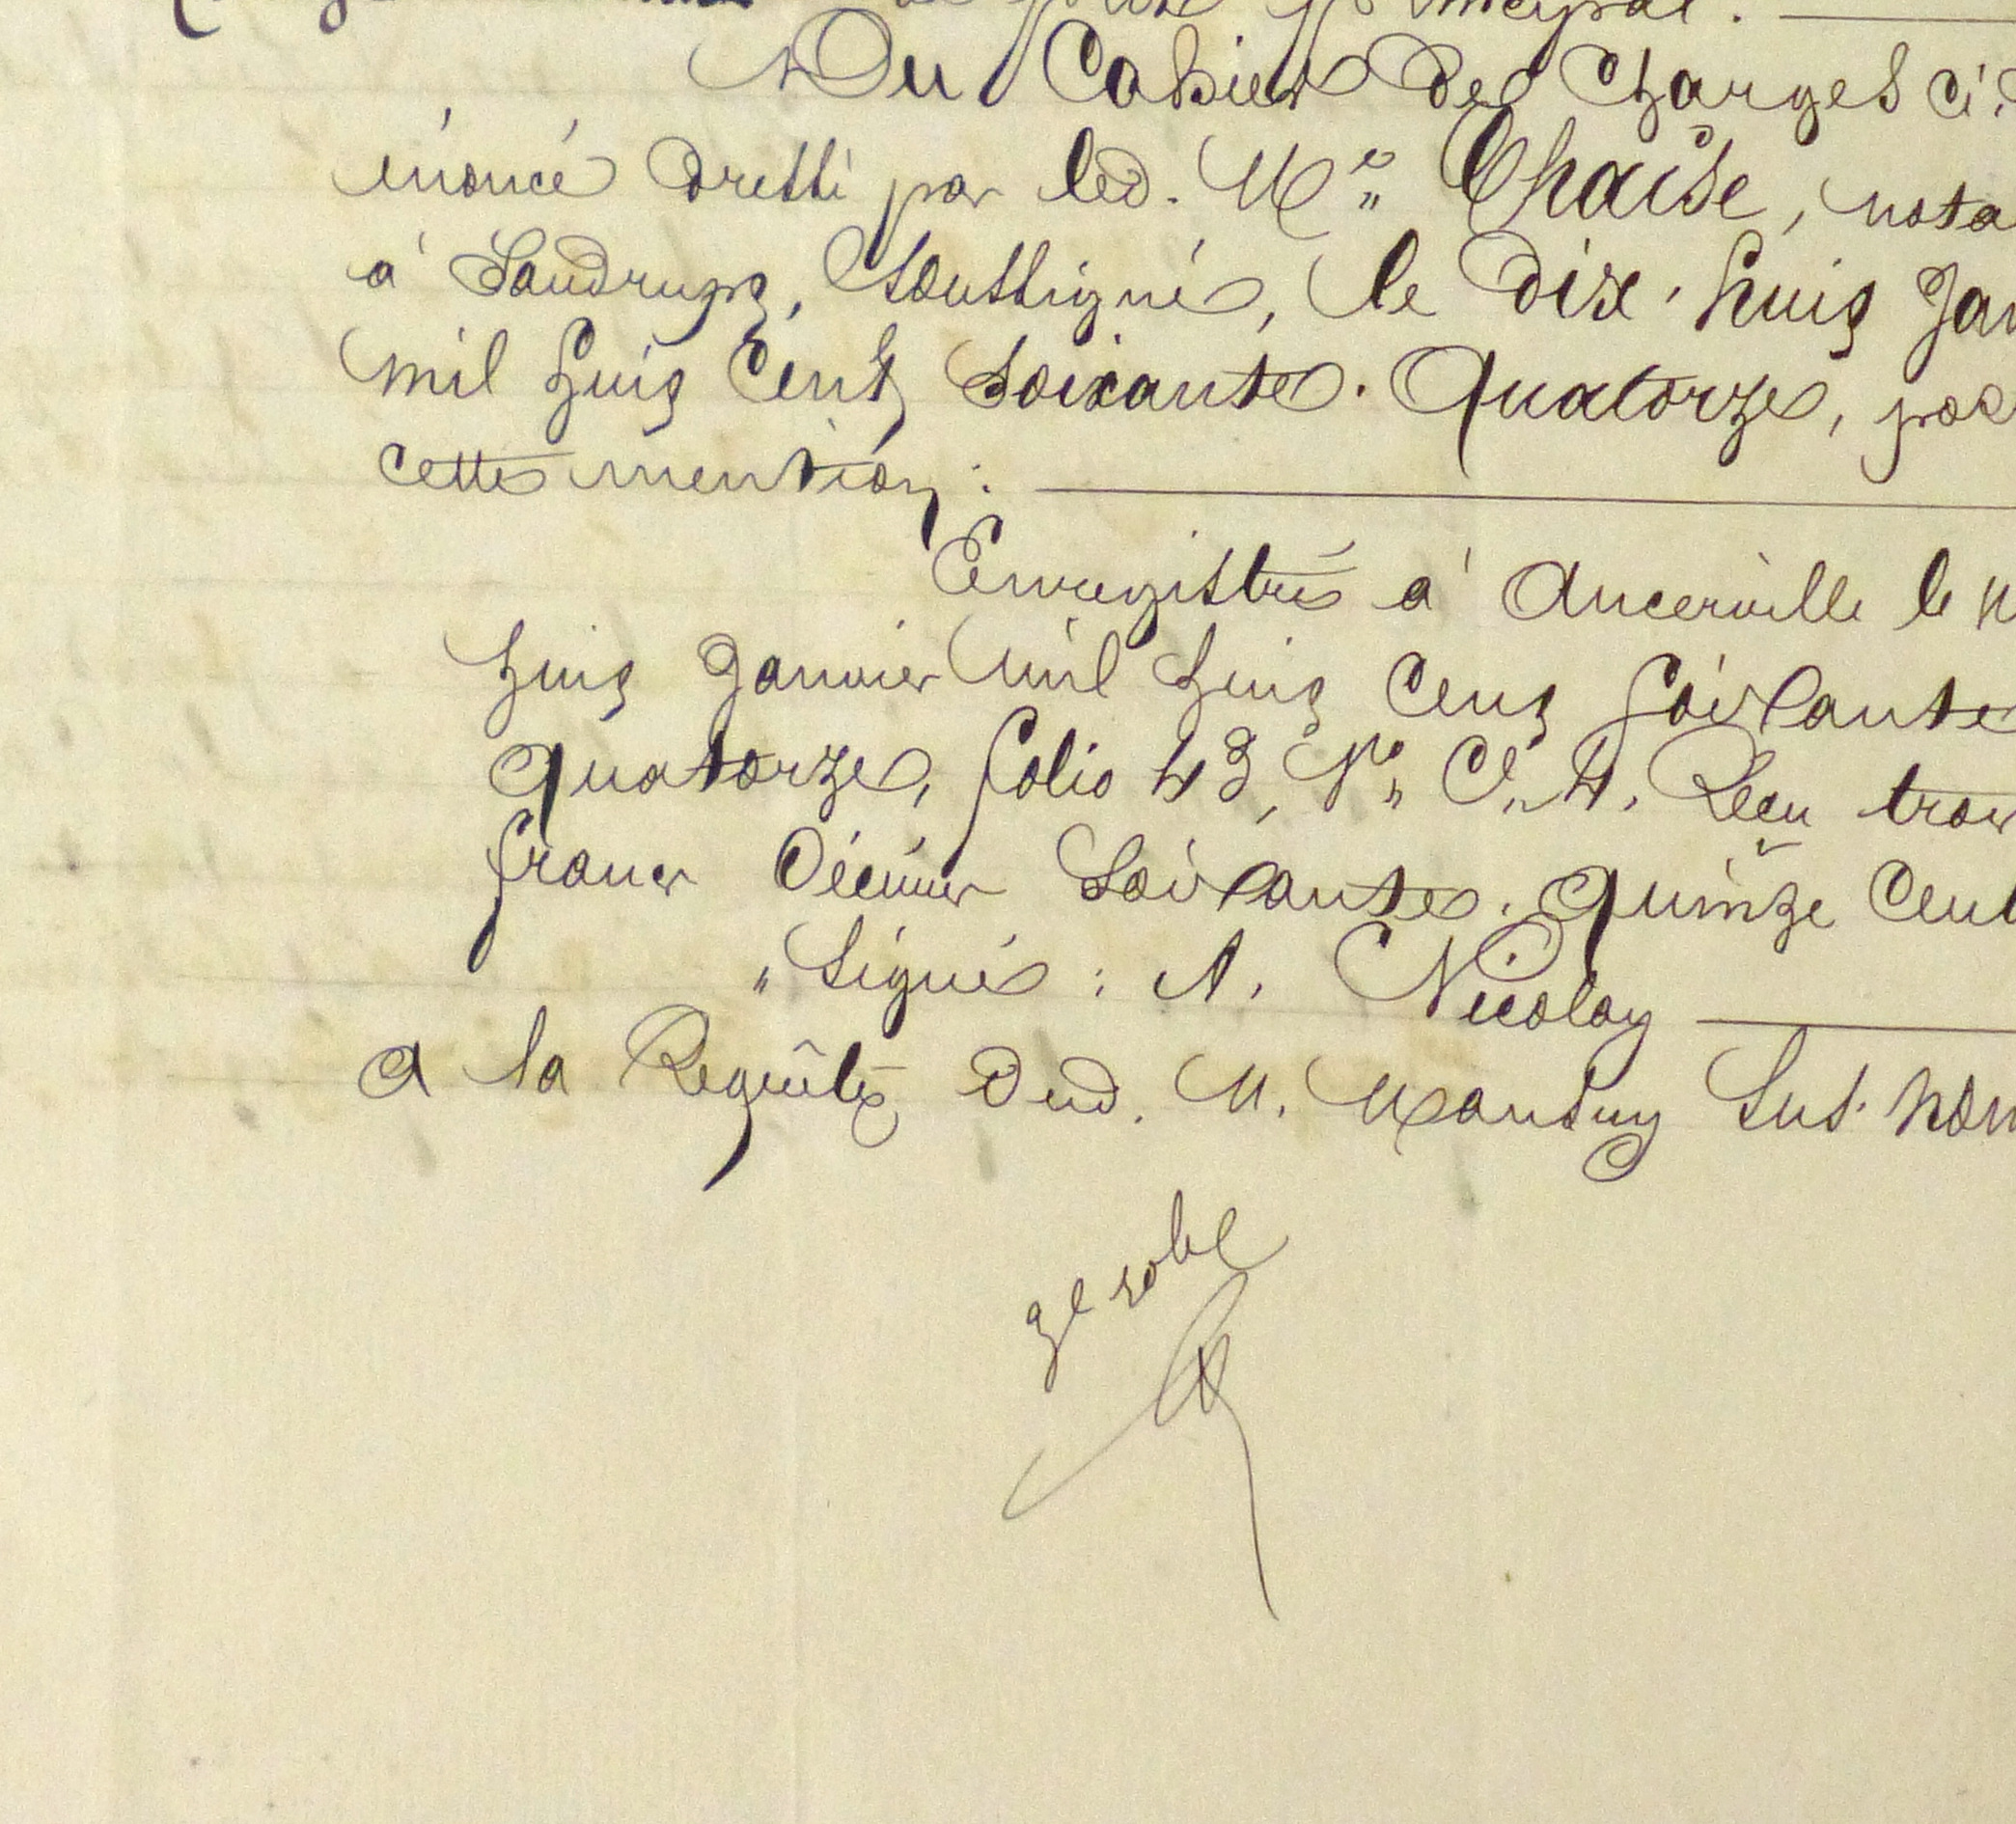 principal.
Du Cahier des Charges ci-
énoncé dressé par led. Me. Chaise, nota
à Saudrupt, soussigné, le dix-huit Jan
mil huit cent soixante-quatorze, por
cette mention:
Enregistré à Ancerville le
huit Janvier mil huit cent soixante
quatorze, folio 43, Vo. C. 4. Reçu trois
francs décimes soixante-quinze cent
Signé: A. Nicolay
A la Requête dud. M. Mansuy sus-nom